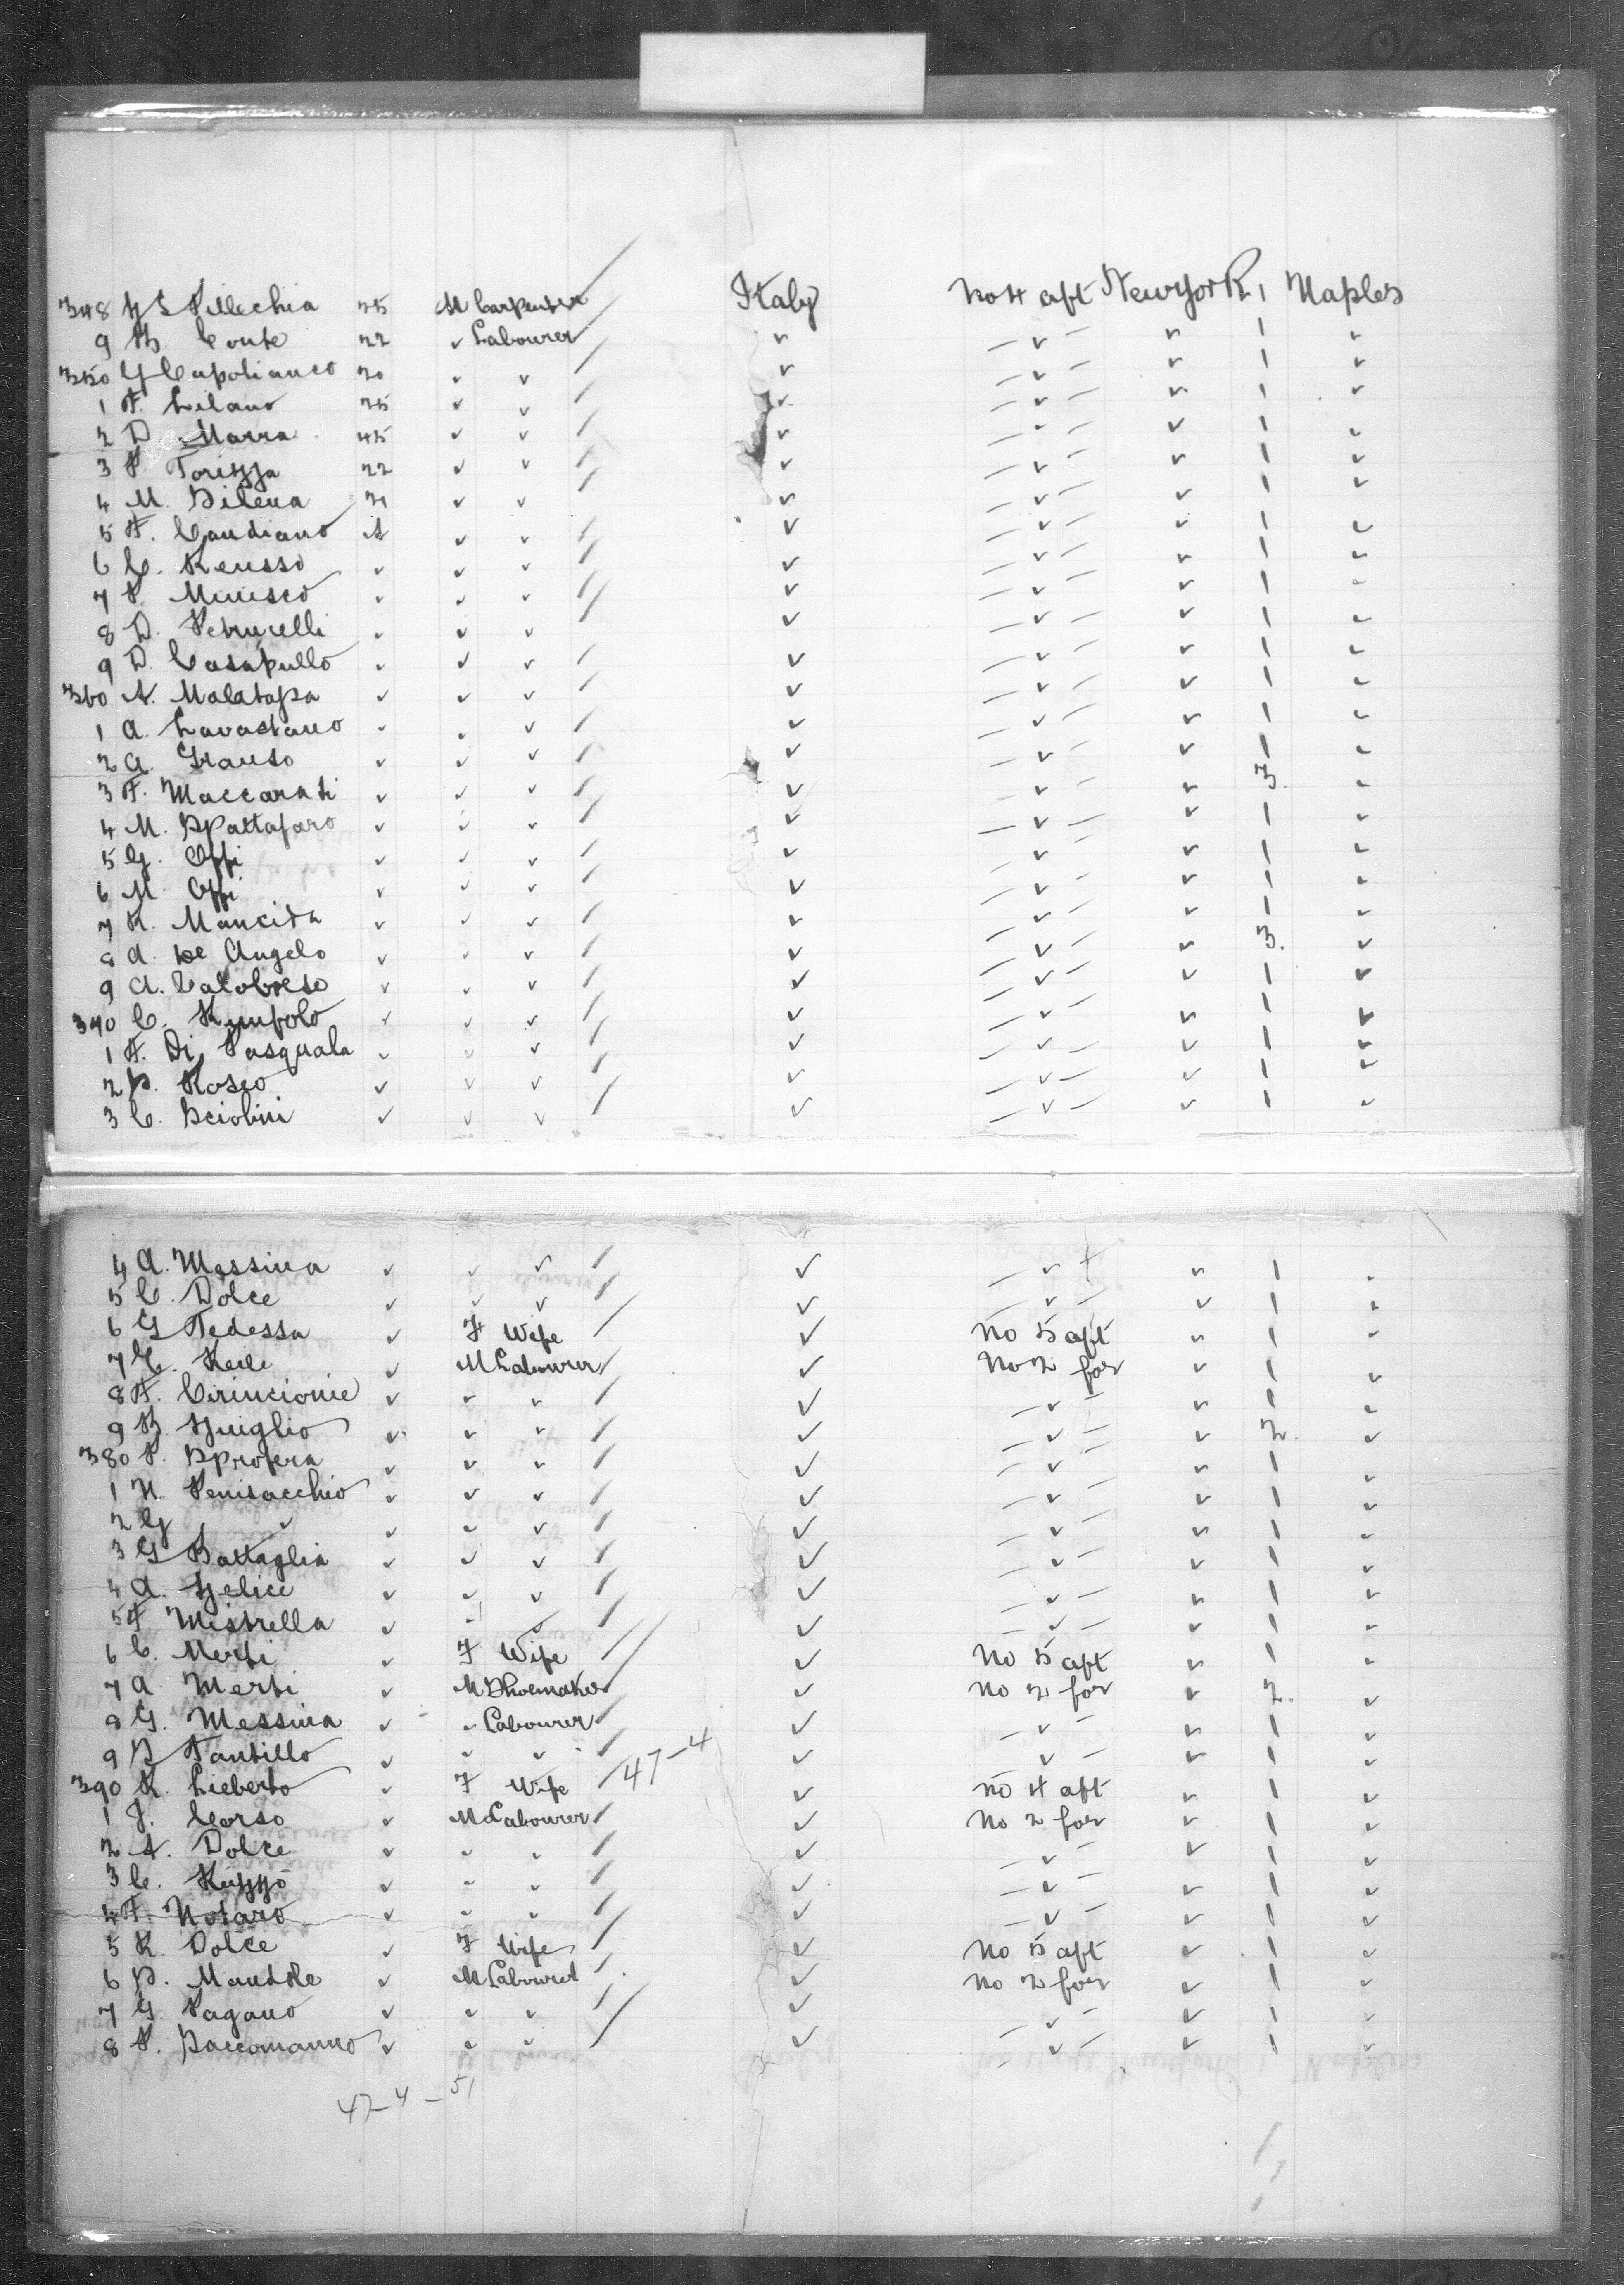 348 G Pellechia 25 M Carpenter Italy No 4 aft New York 1 Naples
9 B. Conte 22 ✓ Labourer ✓ – ✓ – ✓ 1 ✓
350 G Capolianco 30 ✓ ✓ ✓ – ✓ – ✓ 1 ✓
1 F. Lilano 25 ✓ ✓ ✓ – ✓ – ✓ 1 ✓
2 D. Marra 45 ✓ ✓ ✓ – ✓ – ✓ 1 ✓
3 P. Torizza 22 ✓ ✓ ✓ – ✓ – ✓ 1 ✓
4 M. Silena 21 ✓ ✓ ✓ – ✓ – ✓ 1 ✓
5 F. Gaudiano A ✓ ✓ ✓ – ✓ – ✓ 1 ✓
6 C. Reusso ✓ ✓ ✓ ✓ – ✓ – ✓ 1 ✓
7 P. Minisco ✓ ✓ ✓ ✓ – ✓ – ✓ 1 ✓
8 D. Petrucelli ✓ ✓ ✓ ✓ – ✓ – ✓ 1 ✓
9 D. Casapullo ✓ ✓ ✓ ✓ – ✓ – ✓ 1 ✓
360 A. Malatapa ✓ ✓ ✓ ✓ – ✓ – ✓ 1 ✓
1 A. Lavastano ✓ ✓ ✓ ✓ – ✓ – ✓ 1 ✓
2 A. Grauso ✓ ✓ ✓ ✓ – ✓ – ✓ 1 ✓
3 F. Maccarati ✓ ✓ ✓ ✓ – ✓ – ✓ 3 ✓
4 M. Spattafaro ✓ ✓ ✓ ✓ – ✓ – ✓ 1 ✓
5 G. Offi ✓ ✓ ✓ ✓ – ✓ – ✓ 1 ✓
6 M. Offi ✓ ✓ ✓ ✓ – ✓ – ✓ 1 ✓
7 R. Mancida ✓ ✓ ✓ ✓ – ✓ – ✓ 1 ✓
8 A. De Angelo ✓ ✓ ✓ ✓ – ✓ – ✓ 3 ✓
9 A. Calobreso ✓ ✓ ✓ ✓ – ✓ – ✓ 1 ✓
370 C. Rumpolo ✓ ✓ ✓ ✓ – ✓ – ✓ 1 ✓
1 F. Di Pasquala ✓ ✓ ✓ ✓ – ✓ – ✓ 1 ✓
2 S. Rosco ✓ ✓ ✓ ✓ – ✓ – ✓ 1 ✓
3 C. Sciolini ✓ ✓ ✓ ✓ – ✓ – ✓ 1 ✓
4 A. Messina ✓ ✓ ✓ ✓ – ✓ – ✓ 1 ✓
5 C. Dolce ✓ ✓ ✓ ✓ – ✓ – ✓ 1 ✓
6 G Tedessa ✓ F Wife ✓ No 5 aft ✓ 1 ✓
7 C. Reile ✓ M Labourer ✓ No 2 for ✓ 1 ✓
8 F. Cirincionie ✓ ✓ ✓ ✓ – ✓ – ✓ 1 ✓
9 B. Guiglio ✓ ✓ ✓ ✓ – ✓ – ✓ 2 ✓
380 P. Sprofera ✓ ✓ ✓ ✓ – ✓ – ✓ 1 ✓
1 N. Penisacchio ✓ ✓ ✓ ✓ – ✓ – ✓ 1 ✓
2 G ✓ ✓ ✓ ✓ ✓ – ✓ – ✓ 1 ✓
3 G Battaglia ✓ ✓ ✓ ✓ – ✓ – ✓ 1 ✓
4 A. Gelice ✓ ✓ ✓ ✓ – ✓ – ✓ 1 ✓
5 F. Mistrella ✓ ✓ ✓ ✓ – ✓ – ✓ 1 ✓
6 C. Merti ✓ F Wife ✓ No 5 aft ✓ 1 ✓
7 A. Merti ✓ M Shoemaker ✓ No 2 for ✓ 2 ✓
8 G. Messina ✓ ✓ Labourer ✓ – ✓ – ✓ 1 ✓
9 S Tantillo ✓ ✓ ✓ ✓ – ✓ – ✓ 1 ✓
47–4
390 R. Lieberto ✓ F Wife ✓ No 4 aft ✓ 1 ✓
1 J. Corso ✓ M Labourer ✓ No 2 for ✓ 1 ✓
2 A. Dolce ✓ ✓ ✓ ✓ – ✓ – ✓ 1 ✓
3 C. Rizzo ✓ ✓ ✓ ✓ – ✓ – ✓ 1 ✓
4 F. Notaro ✓ ✓ ✓ ✓ – ✓ – ✓ 1 ✓
5 R. Dolce ✓ F Wife ✓ No 5 aft ✓ 1 ✓
6 S. Mandile ✓ M Labourer ✓ No 2 for ✓ 1 ✓
7 G. Pagano ✓ ✓ ✓ ✓ – ✓ – ✓ 1 ✓
8 P. Saccomanno ✓ ✓ ✓ ✓ – ✓ – ✓ 1 ✓
47–4–51